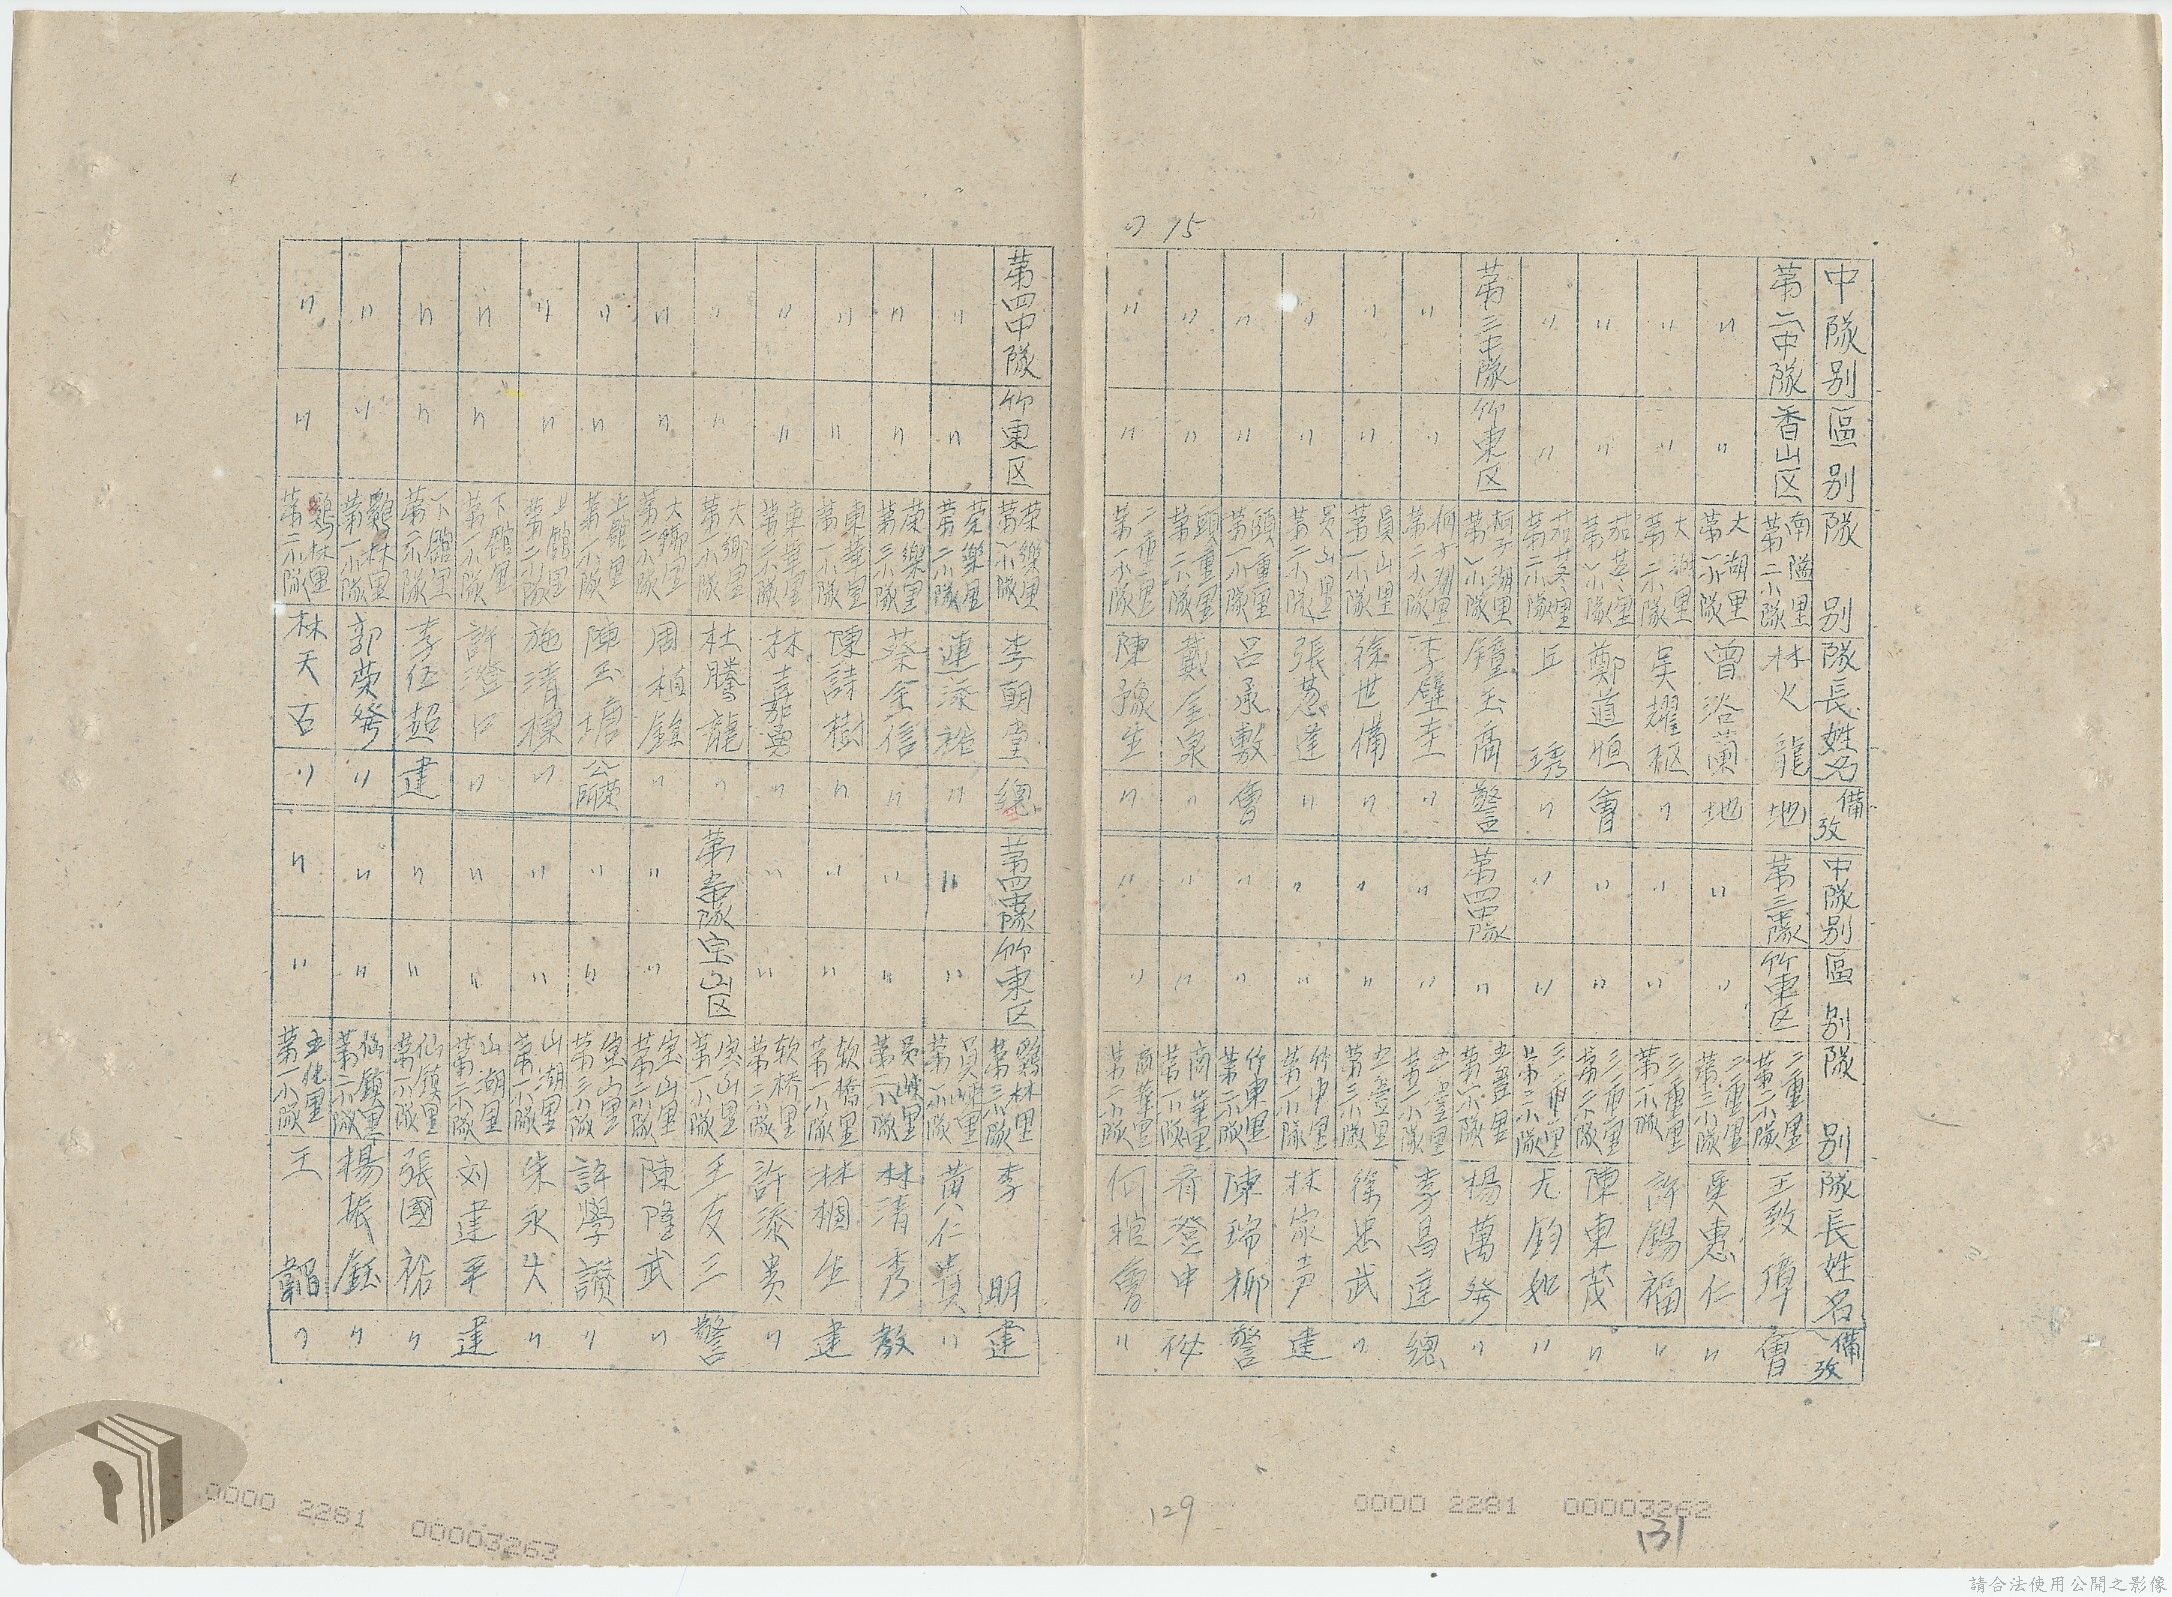 〃 15
中隊別 區別 隊別 隊長姓名 備攷
第二中隊 香山区 南隘里第二小隊 林火龍 地
〃 〃 大湖里第一小隊 曾浴蘭 地
〃 〃 大湖里第二小隊 吳耀枢 〃
〃 〃 茄苳里第一小隊 鄭道恒 會
〃 〃 茄苳里第二小隊 丘琇 〃
第三中隊 竹東区 柯子湖里第一小隊 鐘玉 警
〃 〃 柯子湖里第二小隊 李璧圭 〃
〃 〃 員山里第一小隊 徐世備 〃
〃 〃 員山里第二小隊 張蒽逢 〃
〃 〃 頭重里第一小隊 呂承敷 會
〃 〃 頭重里第二小隊 戴全泉 〃
〃 〃 二重里第一小隊 陳豫生 〃
中隊別 區別 隊別 隊長姓名 備攷
第三中隊 竹東区 二重里第二小隊 王致璋 會
〃 〃 二重里第三小隊 吳惠仁 〃
〃 〃 三重里第一小隊 許錫福 〃
〃 〃 三重里第二小隊 陳東茂 〃
〃 〃 三重里第三小隊 尤鈞如 〃
第四中隊 〃 五豐里第一小隊 楊萬発 〃
〃 〃 五豐里第二小隊 李昌達 總
〃 〃 五豐里第三小隊 徐忠武 〃
〃 〃 竹中里第一小隊 林家声 建
〃 〃 竹東里第二小隊 陳瑞柳 警
〃 〃 商華里第一小隊 澄中 秘
〃 〃 商華里第二小隊 何 會 〃
第四中隊 竹東区 荣樂里第一小隊 李朝堂 總
〃 〃 荣樂里第二小隊 連添裕 〃
〃 〃 荣樂里第三小隊 蔡金信 〃
〃 〃 東華里第一小隊 陳詩樹 〃
〃 〃 東華里第二小隊 林嘉勇 〃
〃 〃 大鄉里第一小隊 杜騰龍 〃
〃 〃 大鄉里第二小隊 周植餘 〃
〃 〃 上館里第一小隊 陳玉塘 公
〃 〃 上館里第二小隊 施清標 〃
〃 〃 下館里第一小隊 許澄 〃
〃 〃 下館里第二小隊 李伍超 建
〃 〃 鷄林里第一小隊 郭荣発 〃
〃 〃 鷄林里第二小隊 林天 〃
第四中隊 竹東区 鷄林里第三小隊 李明 建
〃 〃 員崠里第一小隊 黃仁貴 〃
〃 〃 員崠里第二小隊 林清秀 教
〃 〃 軟橋里第一小隊 林棞生 建
〃 〃 軟桥里第二小隊 許添貴 〃
第五中隊 宝山区 宝山里第一小隊 王友三 警
〃 〃 宝山里第二小隊 陳隆武 〃
〃 〃 宝山里第三小隊 許學讚 〃
〃 〃 山湖里第一小隊 朱永 〃
〃 〃 山湖里第二小隊 刘建平 建
〃 〃 仙鎮里第一小隊 張國裕 〃
〃 〃 仙鎮里第二小隊 楊振鈺 〃
〃 〃 里第一小隊 王韜 〃
129
131
0000 2281 00003262
0000 2281 00003263
請合法使用公開之影像